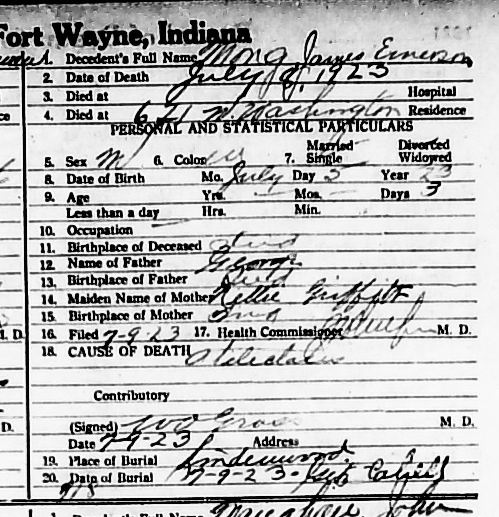 Fort Wayne, Indiana
1. Decedent's Full Name Mong James Emerson
2. Date of Death July 8, 1923
3. Died at Hospital
4. Died at 621 W. Washington Residence
PERSONAL AND STATISTICAL PARTICULARS
5. Sex M 6. Color W 7. Married Single Divorced Widowed
8. Date of Birth Mo. July Day 5 Year 23
9. Age Yrs. Mos. Days 3
Less than a day Hrs. Min.
10. Occupation
11. Birthplace of Deceased Ind
12. Name of Father George
13. Birthplace of Father Ind
14. Maiden Name of Mother Nettie Griffith
15. Birthplace of Mother Ind
16. Filed 7-9-23 17. Health Commissioner M. D.
18. CAUSE OF DEATH Atelectasis
Contributory
(Signed) Gross M. D.
Date 7-9-23 Address
19. Place of Burial Lindenwood
20. Date of Burial 7-9-23
Decedent's Full Name John